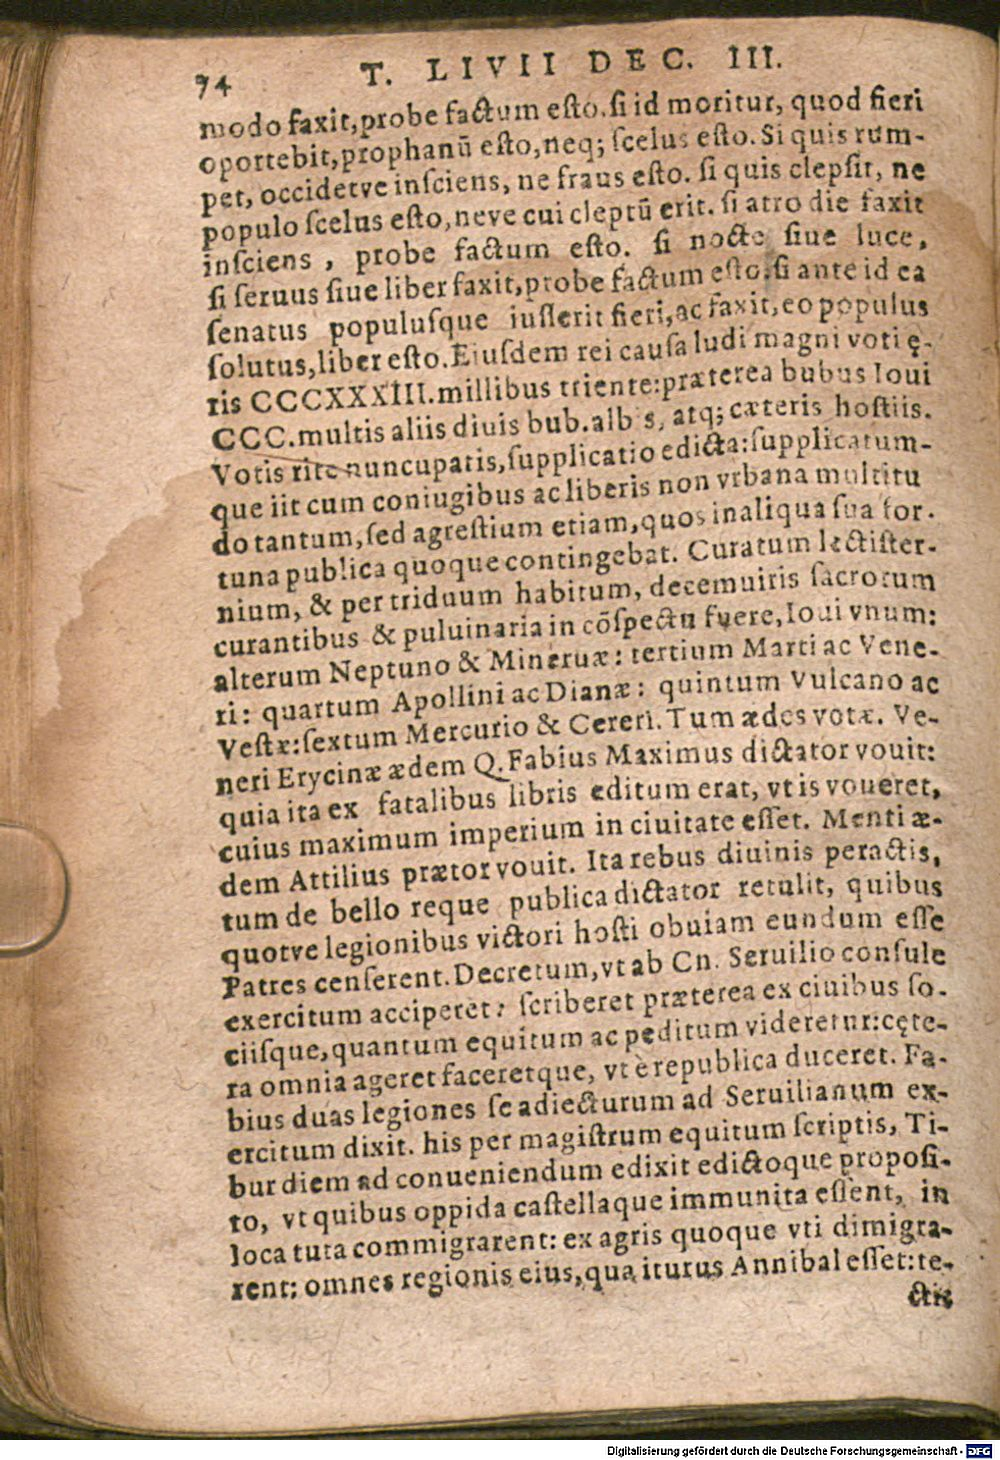 74 T. LIVII DEC. III.
modo faxit,probe factum esto.si id moritur, quod fieri
oportebit,prophanū esto,neq; scelus esto. Si quis rum-
pet, occidetve insciens, ne fraus esto. si quis clepsit, ne
populo scelus esto,neve cui cleptū erit. si atro die faxit
insciens , probe factum esto. si nocte siue luce,
si seruus siue liber faxit,probe factum esto.si ante id ea
senatus populusque iusserit fieri,ac faxit,eo populus
solutus,liber esto.Eiusdem rei causa ludi magni voti ę-
ris CCCXXXIII.millibus triente:præterea bubus Ioui
CCC.multis aliis diuis bub.alb s, atq; cæteris hostiis.
Votis rite nuncupatis,supplicatio edicta:supplicatum-
que iit cum coniugibus ac liberis non vrbana multitu
do tantum,sed agrestium etiam,quos in aliqua sua for.
tuna publica quoque contingebat. Curatum lectister-
nium, & per triduum habitum, decemuiris sacrorum
curantibus & puluinaria in cōspectu fuere,Ioui vnum:
alterum Neptuno & Mineruæ: tertium Marti ac Vene-
ri: quartum Apollini ac Dianæ: quintum Vulcano ac
Vestæ:sextum Mercurio & Cereri. Tum ædes votæ. Ve-
neri Erycinæ ædem Q. Fabius Maximus dictator vouit:
quia ita ex fatalibus libris editum erat, vt is voueret,
cuius maximum imperium in ciuitate esset. Menti æ-
dem Attilius prætor vouit. Ita rebus diuinis peractis,
tum de bello reque publica dictator retulit, quibus
quotve legionibus victori hosti obuiam eundum esse
Patres censerent. Decretum,vt ab Cn. Seruilio consule
exercitum acciperet: scriberet præterea ex ciuibus so-
ciisque,quantum equitum ac peditum videretur:cęte-
ra omnia ageret faceretque, vt è republica duceret. Fa-
bius duas legiones se adiecturum ad Seruilianum ex-
ercitum dixit. his per magistrum equitum scriptis, Ti-
bur diem ad conueniendum edixit edictoque proposi-
to, vt quibus oppida castellaque immunita essent, in
loca tuta commigrarent: ex agris quoque vti dimigra-
rent: omnes regionis eius,qua iturus Annibal esset:te-
ctis
Digitalisierung gefördert durch die Deutsche Forschungsgemeinschaft - DFG